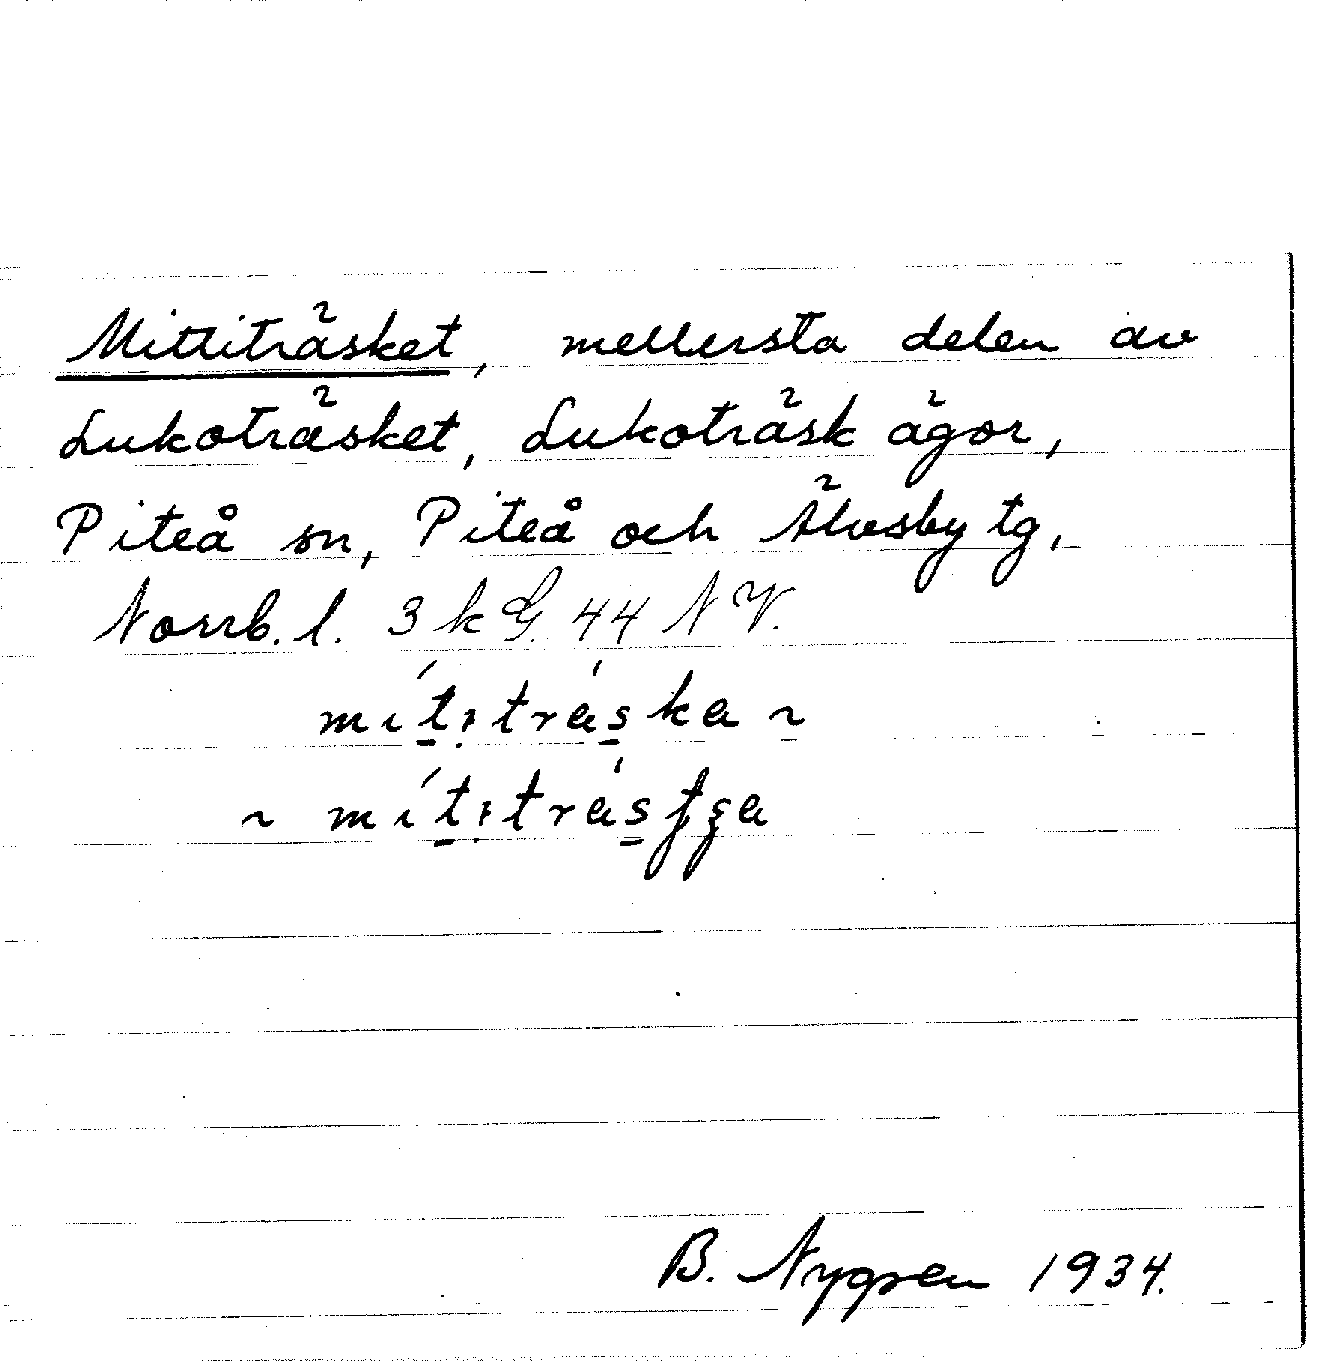 Mittiträsket, mellersta delen av
Lukoträsket, Lukoträsk ägor,
Piteå sn, Piteå och Älvsby tg,
Norrb. l. 3 k G. 44 N V.
mítıtráska ~
~ mítıtrásʄʓa
B. Nygren 1934.